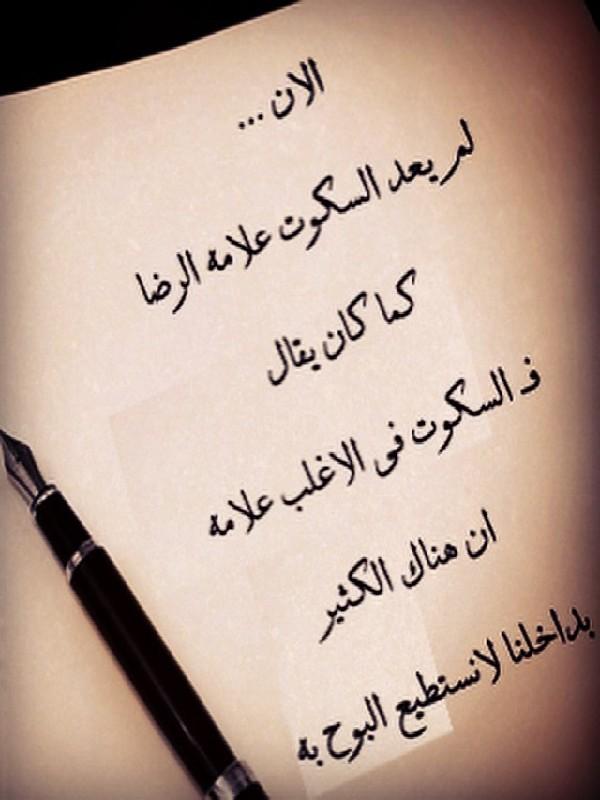 الان ...
لم يعد السكوت علامه الرضا
كما كان يقال
فـ السكوت فى الاغلب علامه
ان هناك الكثير
بداخلنا لانستطيع البوح به